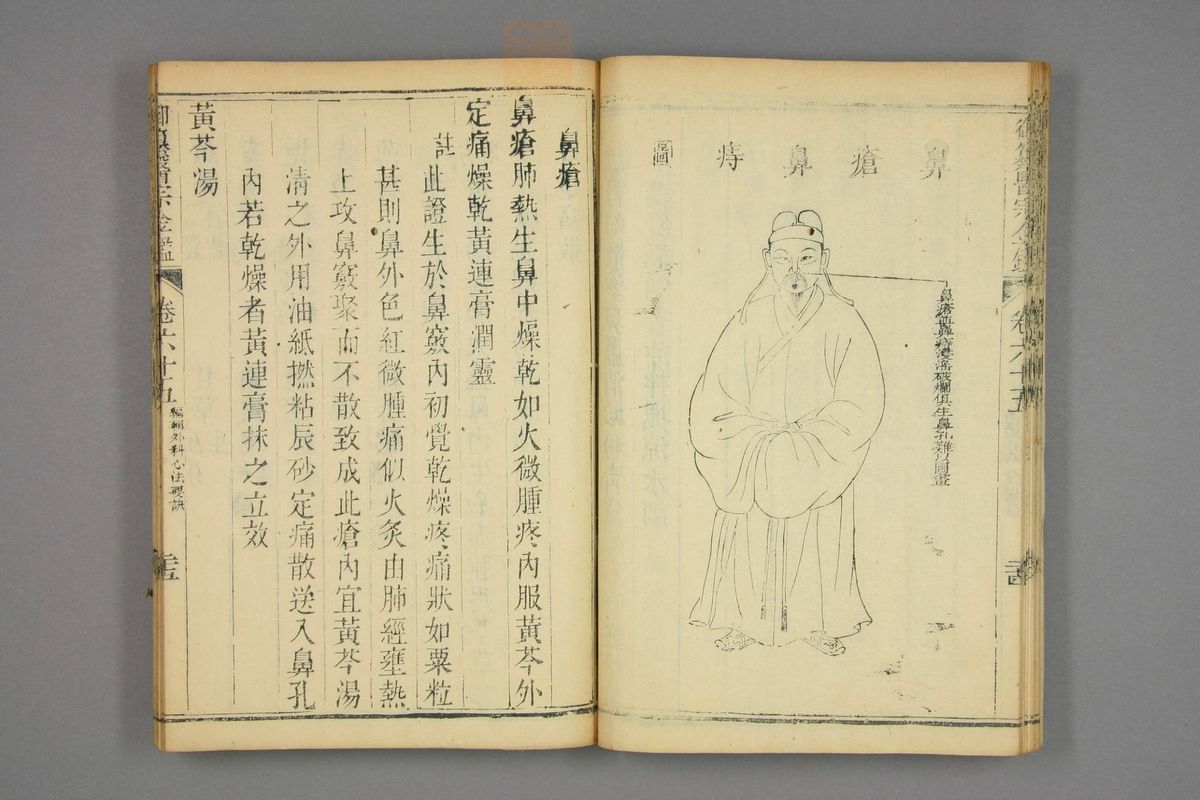 御纂醫宗金鑑
卷六十五
鼻瘡鼻痔圖
鼻瘡並鼻痔浸淫破爛俱生鼻孔難以圖畫
鼻瘡
鼻瘡肺熱生鼻中燥乾如火微腫疼內服黃芩外
定痛燥乾黃連膏潤靈
註
此證生於鼻竅內初覺乾燥疼痛狀如粟粒
甚則鼻外色紅微腫痛似火炙由肺經壅熱
上攻鼻竅聚而不散致成此瘡內宜黃芩湯
清之外用油紙撚粘辰砂定痛散送入鼻孔
內若乾燥者黃連膏抹之立效
黃芩湯
御纂醫宗金鑑
卷六十五
編輯外科心法要訣